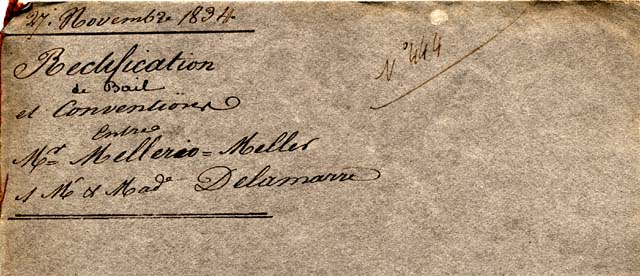 27. Novembre 1834.
N° 444
Rectification
de Bail
et Conventions
Entre
Mr. Mellerio=Meller
et Mr & Made Delamarre